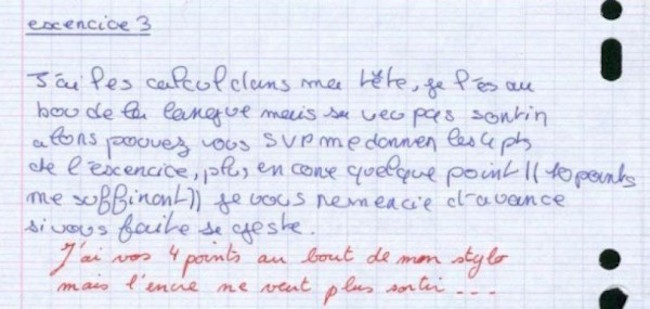 excercice 3
J'ai les calcul dans ma tête, je l'es au
bou de la langue mais sa veu pas sortir
alors pouvez vous SVP me donner les 4 pts
de l'exercice, plus encore quelque point (( 10 points
me suffiront)) je vous remercie d'avance
si vous faite se geste.
J'ai vos 4 points au bout de mon stylo
mais l'encre ne veut plus sortir ...